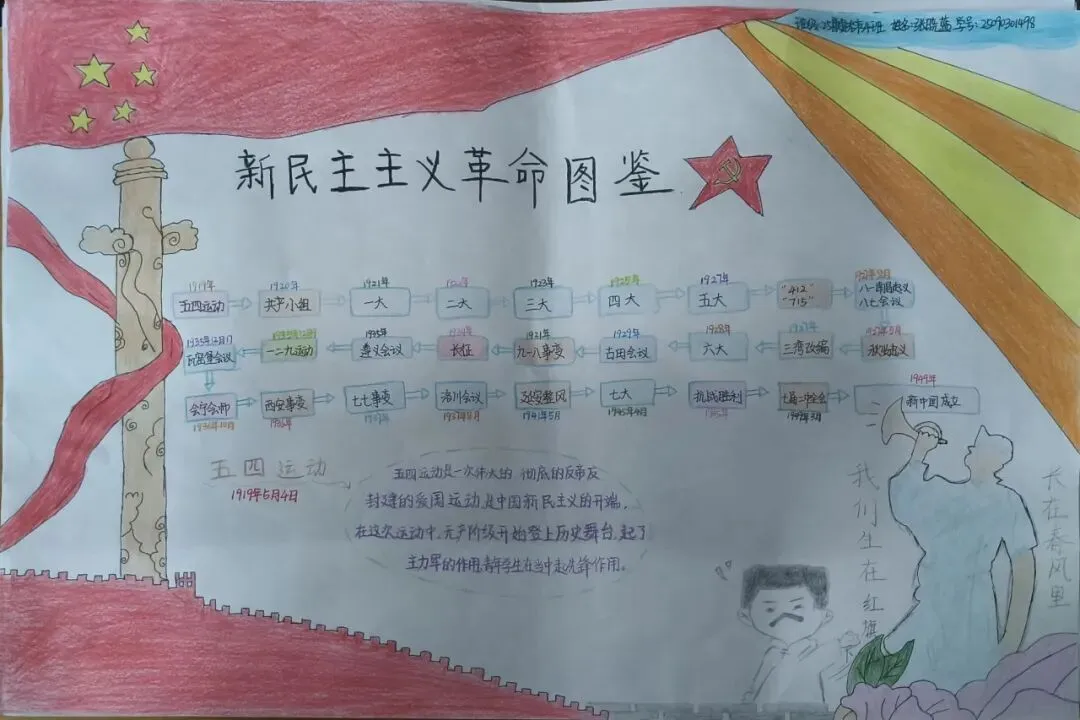 姓名:张晓蓝 学号:25090301498
新民主主义革命图鉴
1919年 1920年 1921年 1922年 1923年 1925年 1927年 1927年8月
五四运动 共产小组 一大 二大 三大 四大 五大 "412" "715" 八一南昌起义 八七会议
1935年12月17 1935年12月9 1935年 1934年 1931年 1929年 1928年 1927年 1927年9月
瓦窑堡会议 一二九运动 遵义会议 长征 九一八事变 古田会议 六大 三湾改编 秋收起义
会宁会师 西安事变 七七事变 洛川会议 延安整风 七大 抗战胜利 七届二中全会 新中国成立
1936年10月 1936年 1937年 1937年8月 1941年5月 1945年4月 1945年 1949年3月 1949年
五四运动
1919年5月4日
五四运动是一次伟大的 彻底的反帝反
封建的爱国运动,是中国新民主义的开端,
在这次运动中,无产阶级开始登上历史舞台,起了
主力军的作用,青年学生在当中起先锋作用。
我们生在红旗下
长在春风里